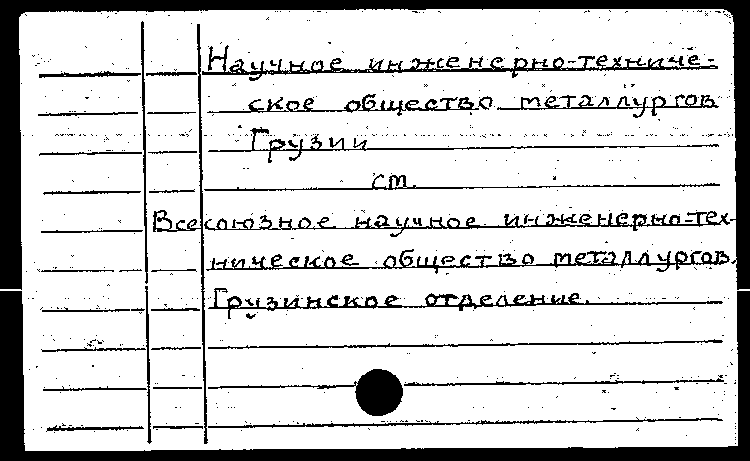 Научное инженерно-техниче-
ское общество металлургов
Грузии
см.
Всесоюзное научное инженерно-тех-
ническое общество металлургов.
Грузинское отделение.